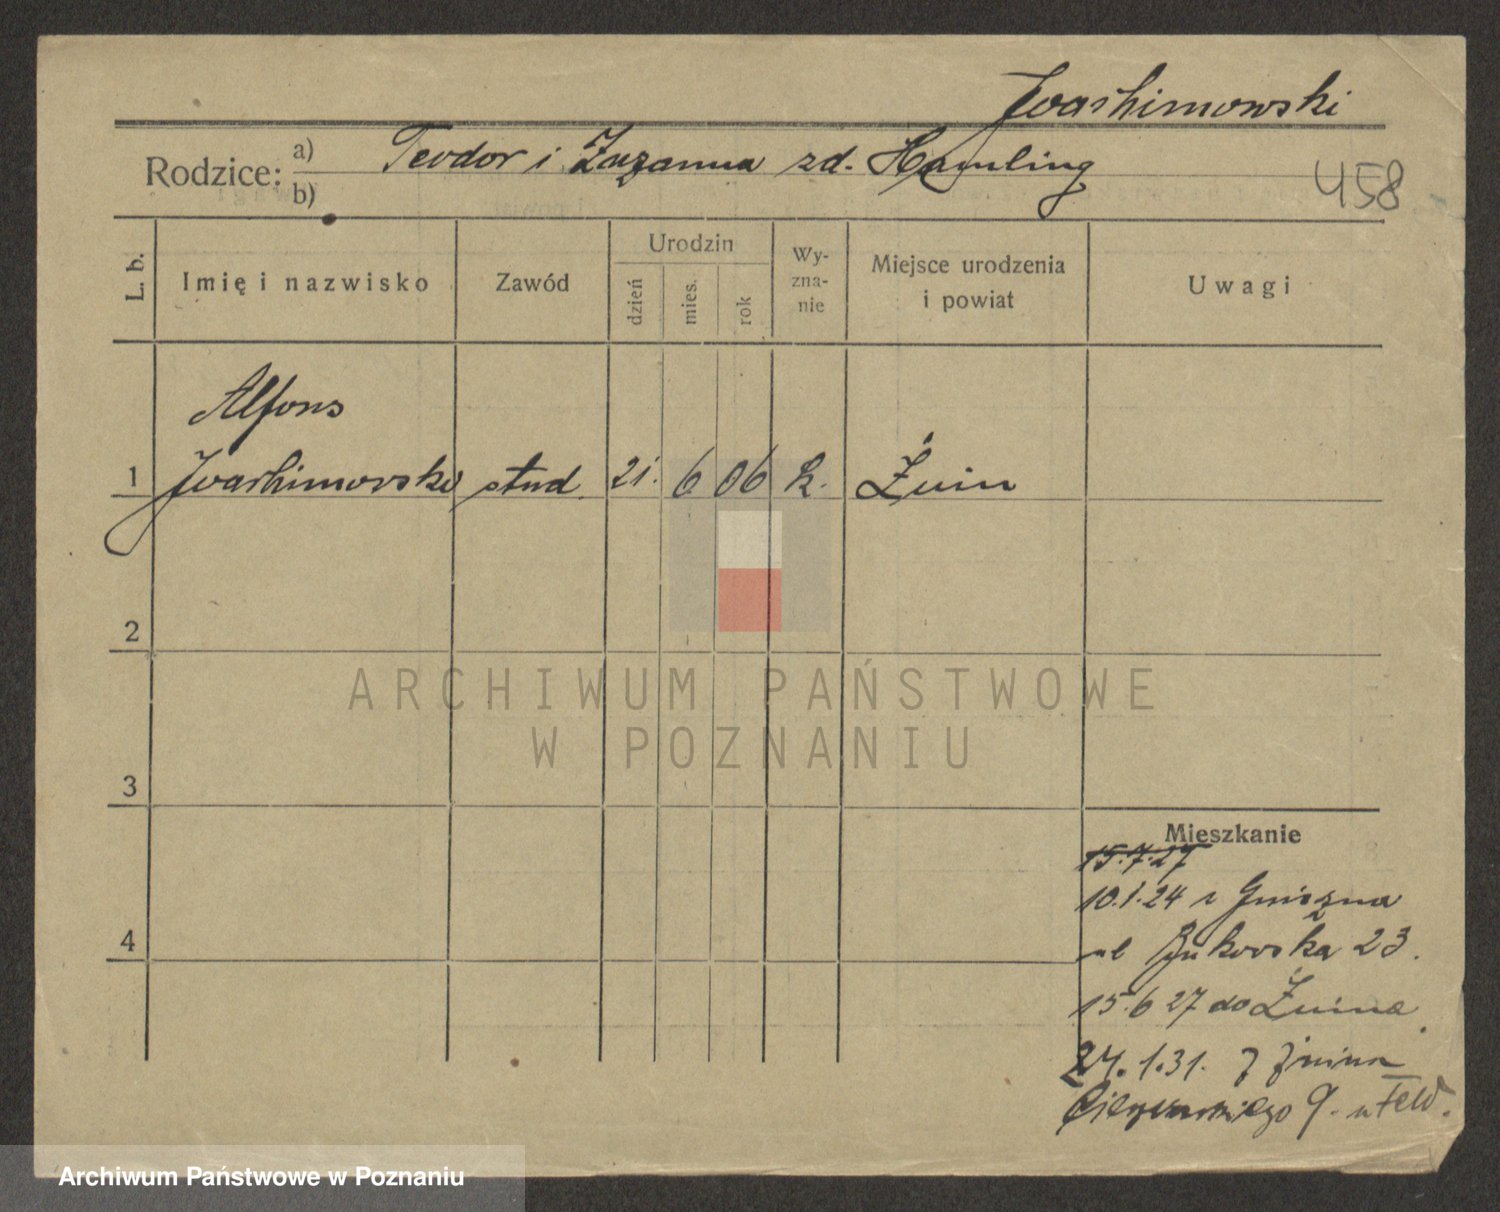 Joachimowski
Rodzice: a) Teodor i Zuzanna zd. Hamling
b)
458
L. b. Imię i nazwisko Zawód Urodzin dzień mies. rok Wy-zna-nie Miejsce urodzenia i powiat Uwagi
Alfons
1 Joachimowski stud. 21. 6 06 k. Żnin
2
3
4
Mieszkanie
15.7.27
10.1.24 z Gniezna
ul Żukowska 23.
15.6 27 do Żnina
24.1.31. z Żnina
9. u Feld.
ARCHIWUM PAŃSTWOWE
W POZNANIU
Archiwum Państwowe w Poznaniu